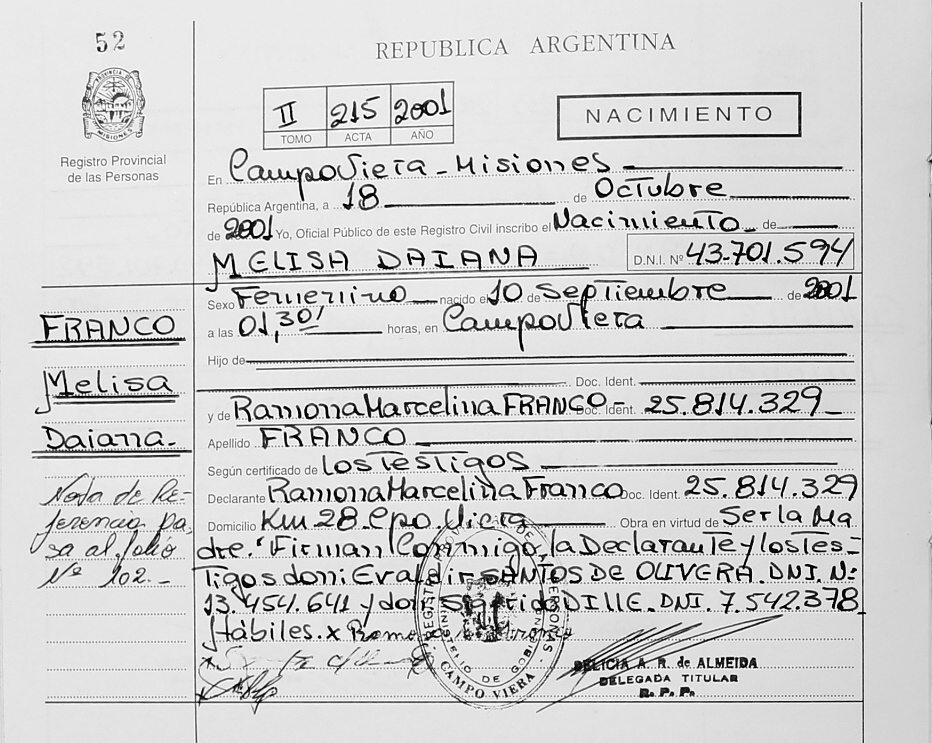 52
REPUBLICA ARGENTINA
PROVINCIA DE MISIONES
Registro Provincial
de las Personas
II 215 2001
TOMO ACTA AÑO
NACIMIENTO
En Campo Viera - Misiones
República Argentina, a 18 de Octubre
de 2001 Yo, Oficial Público de este Registro Civil inscribo el Nacimiento de
MELISA DAIANA D.N.I. Nº 43.701.594
Sexo Femenino nacido el 10 de Septiembre de 2001
a las 01,30' horas, en Campo Viera
Hijo de
Doc. Ident.
y de Ramona Marcelina FRANCO - Doc. Ident. 25.814.329
Apellido FRANCO
Según certificado de los Testigos
Declarante Ramona Marcelina Franco Doc. Ident. 25.814.329
Domicilio Km 28. Cpo. Viera Obra en virtud de Ser la Ma
dre. Firman Conmigo, la Declarante y los Tes-
tigos don: SANTOS DE OLIVERA. DNI. Nº
13.454.641 y don DILLE. DNI. 7.542.378
Hábiles. x
FRANCO
Melisa
Daiana.-
Nota de Re-
ferencia pa-
sa al folio
Nº 102.-
CAMPO VIERA
DELICIA A. R. de ALMEIDA
DELEGADA TITULAR
R. P. P.